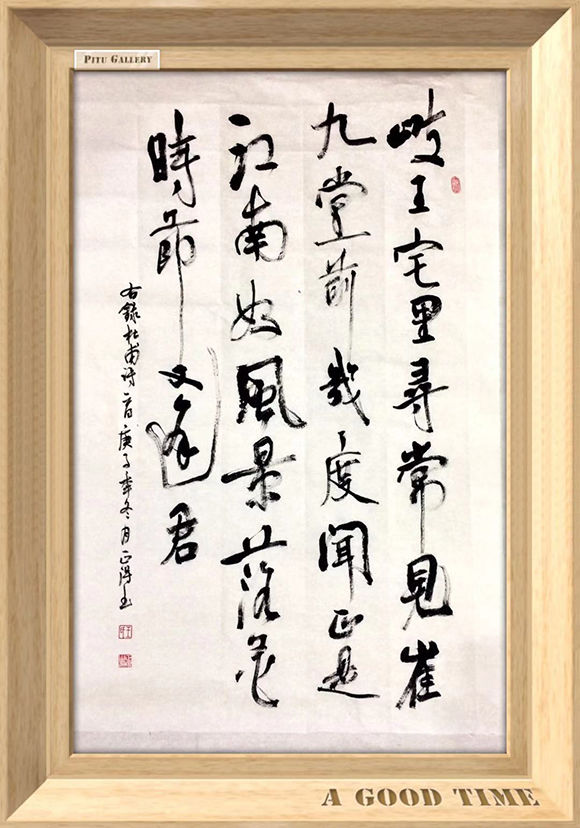 PITU GALLERY
岐王宅里尋常見崔
九堂前幾度聞正是
江南好風景落花
時節又逢君
右錄杜甫詩一首庚子年冬月正得書
A GOOD TIME